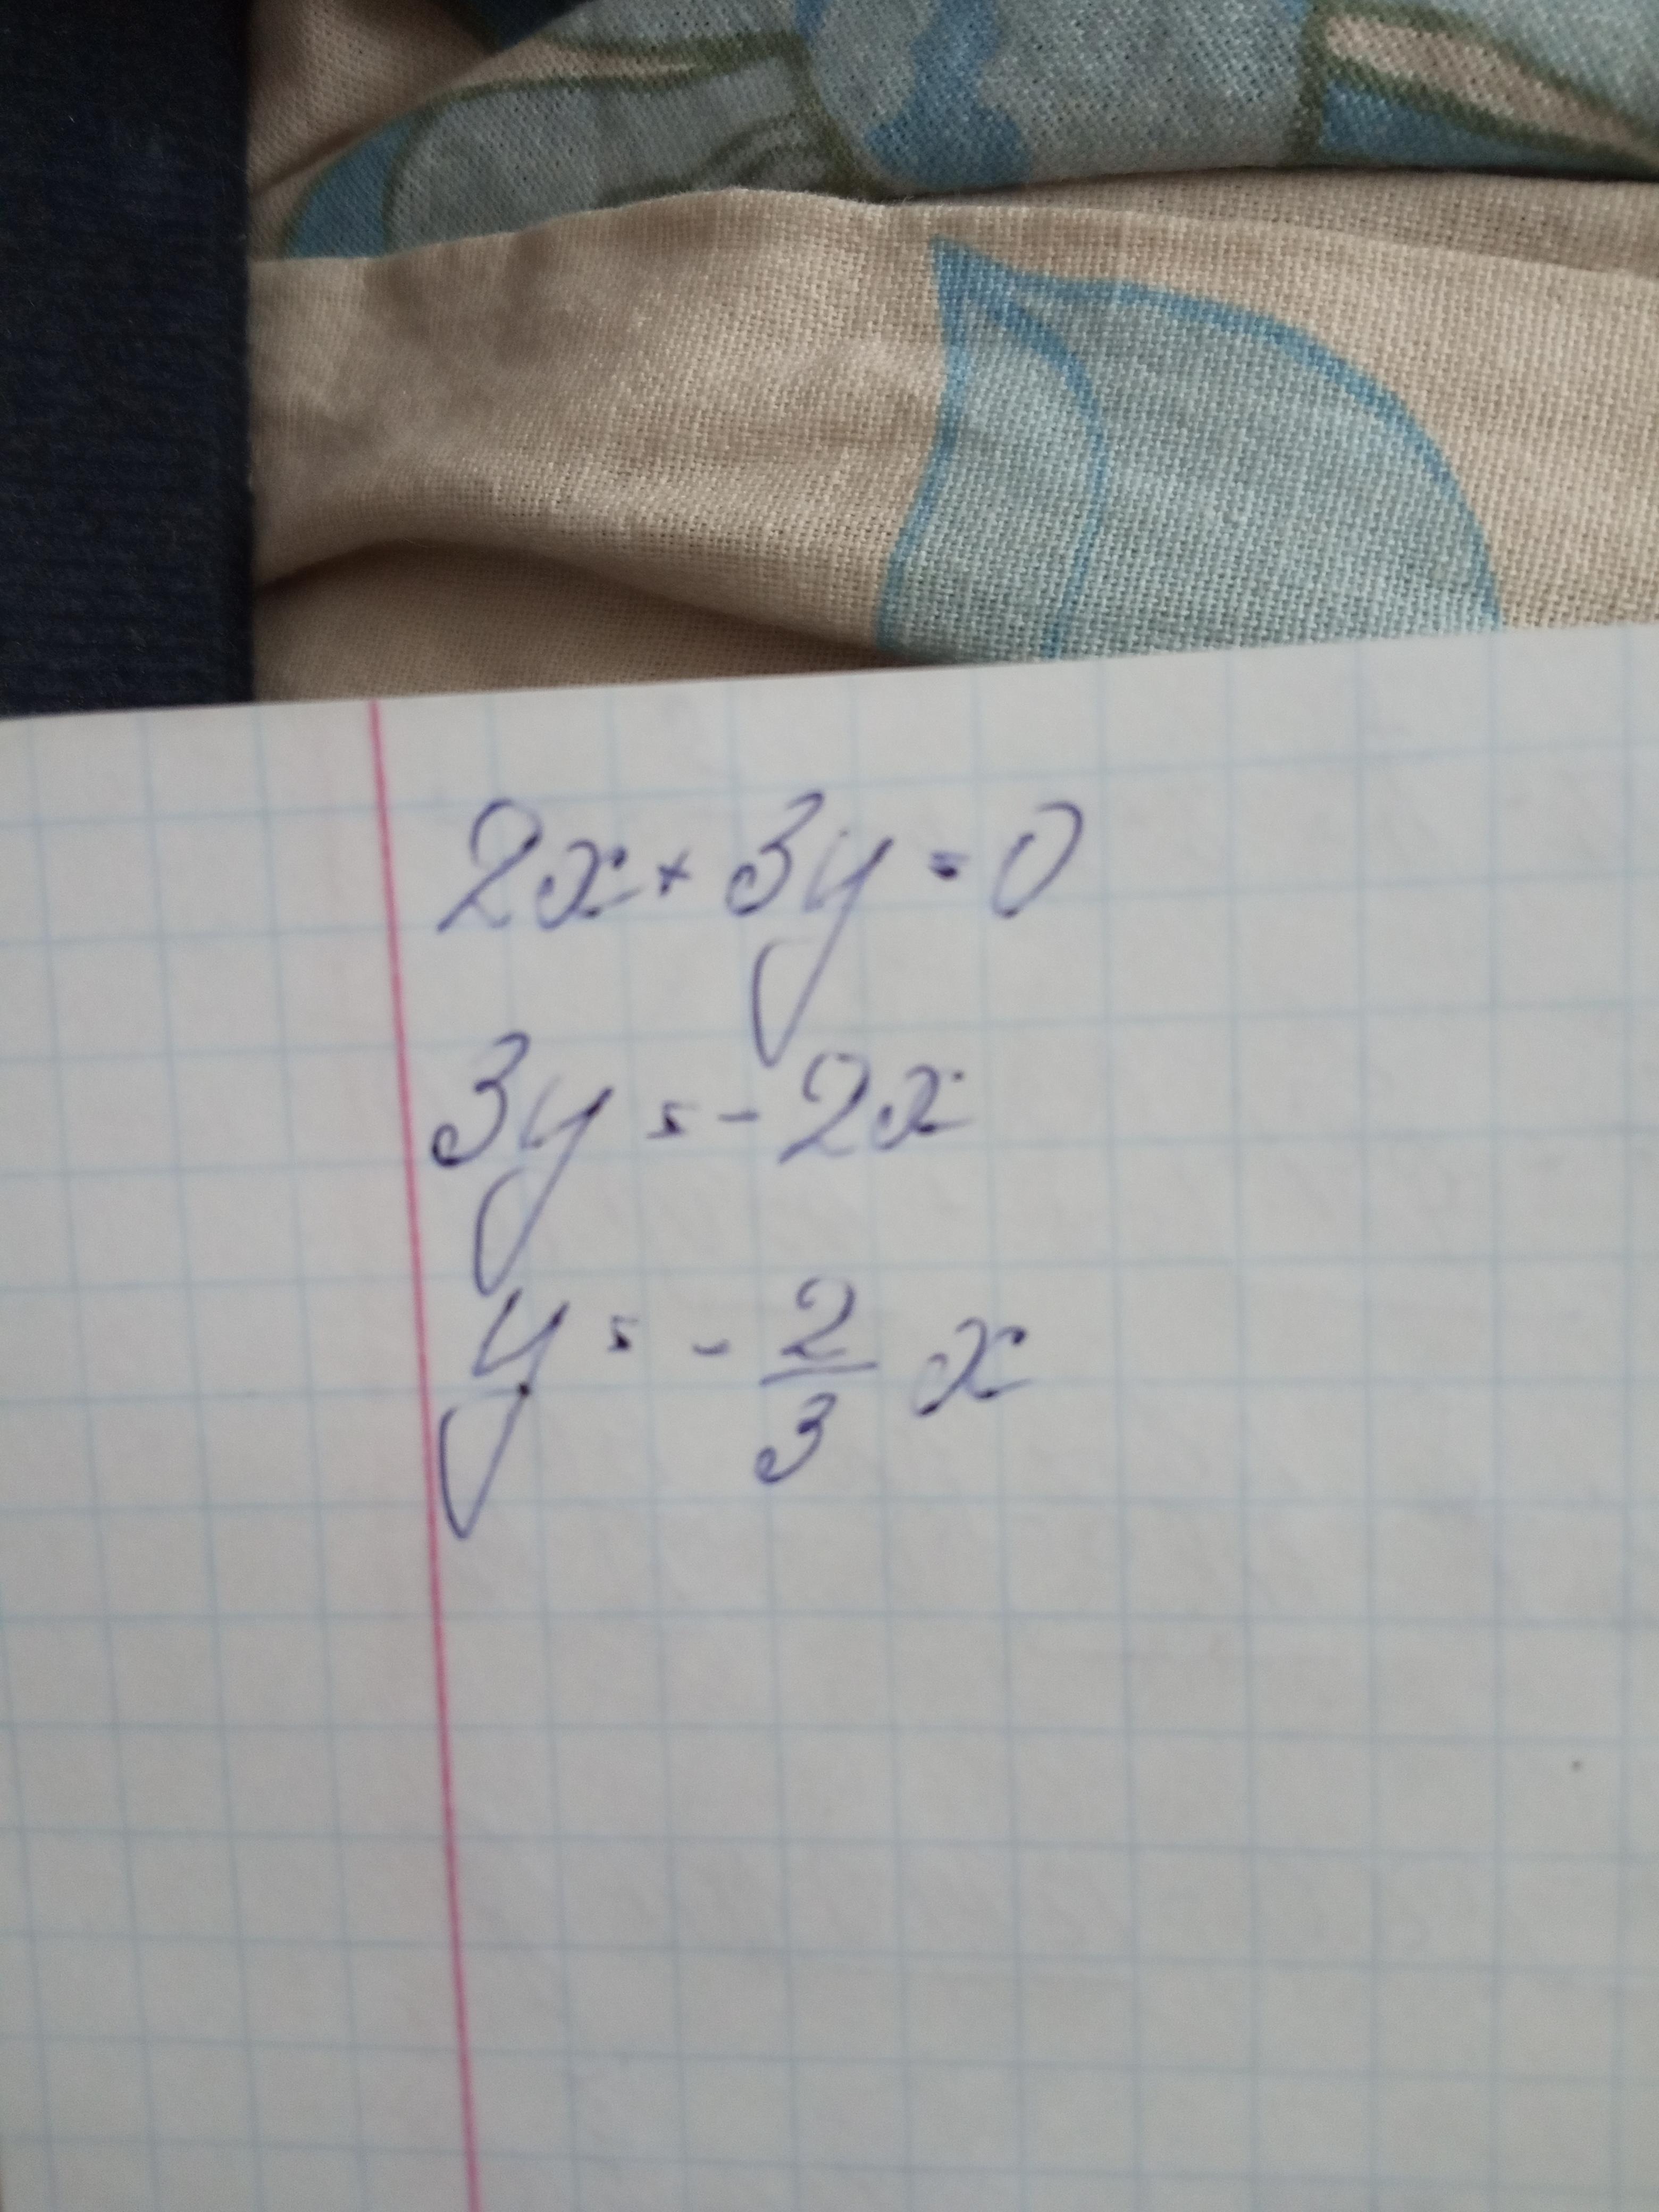 2x + 3y = 0
3y = - 2x
y = - 2/3 x